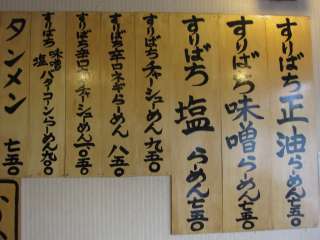 すりばち正油らーめん七五〇
すりばち味噌らーめん七五〇
すりばち塩らーめん七五〇
すりばちチャーシューめん九五〇
すりばち辛口ネギらーめん八五〇
すりばち辛口チャーシューめん一〇五〇
すりばち味噌塩バターコーンらーめん九〇〇
タンメン七五〇